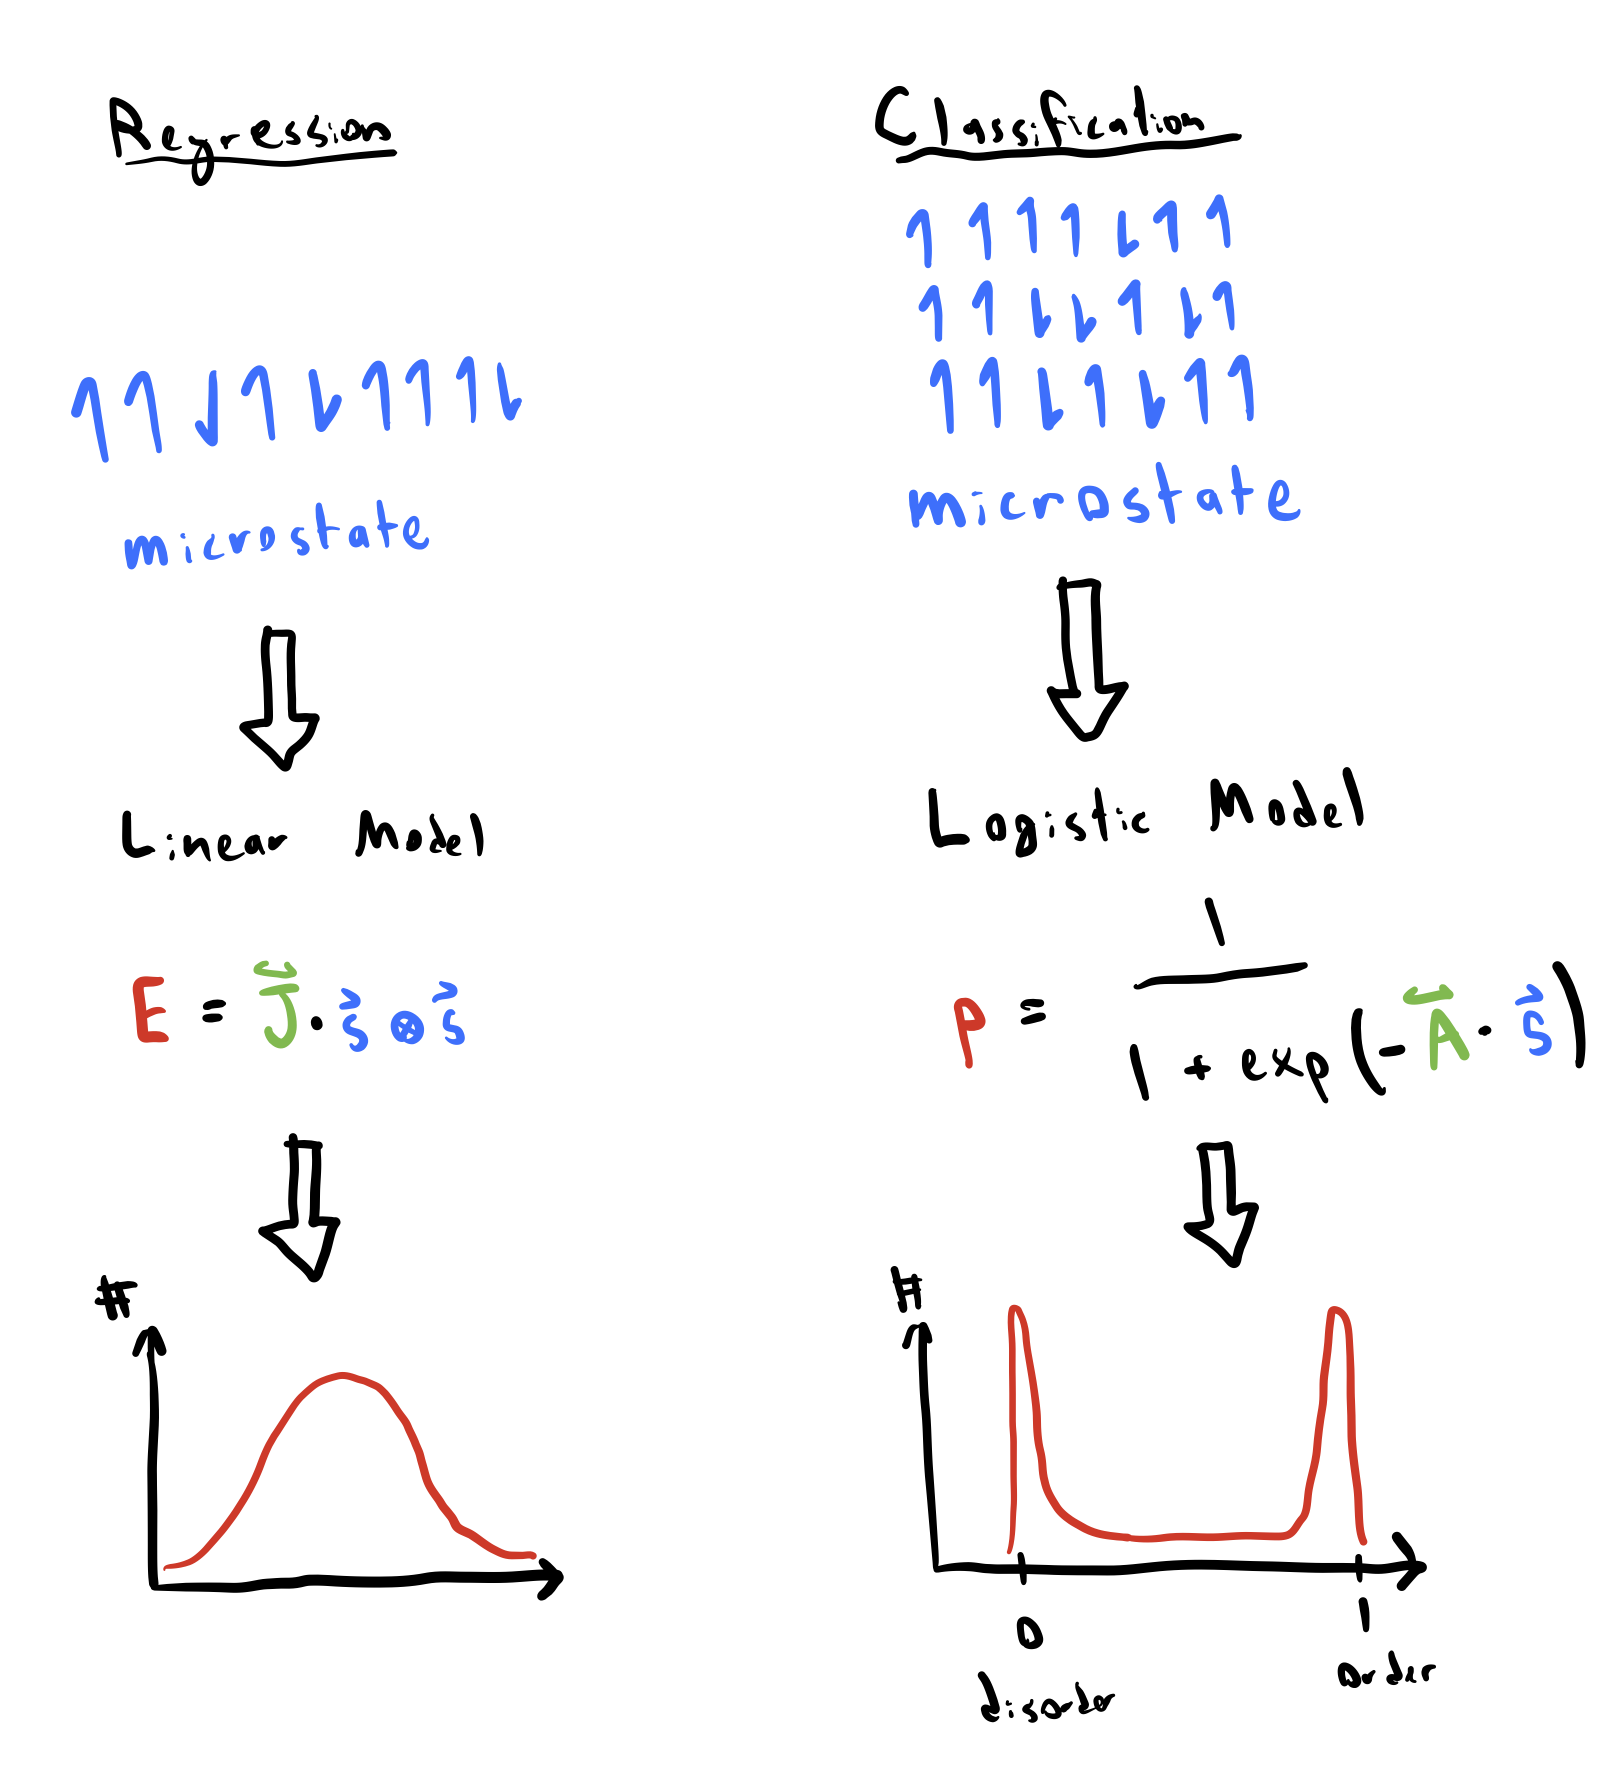 Regression
microstate
Linear Model
E = J⃡ · s⃗ ⊗ s⃗
#
Classification
microstate
Logistic Model
p = 1 / 1 + exp(-A⃡ · s⃗)
#
0 1
disorder order